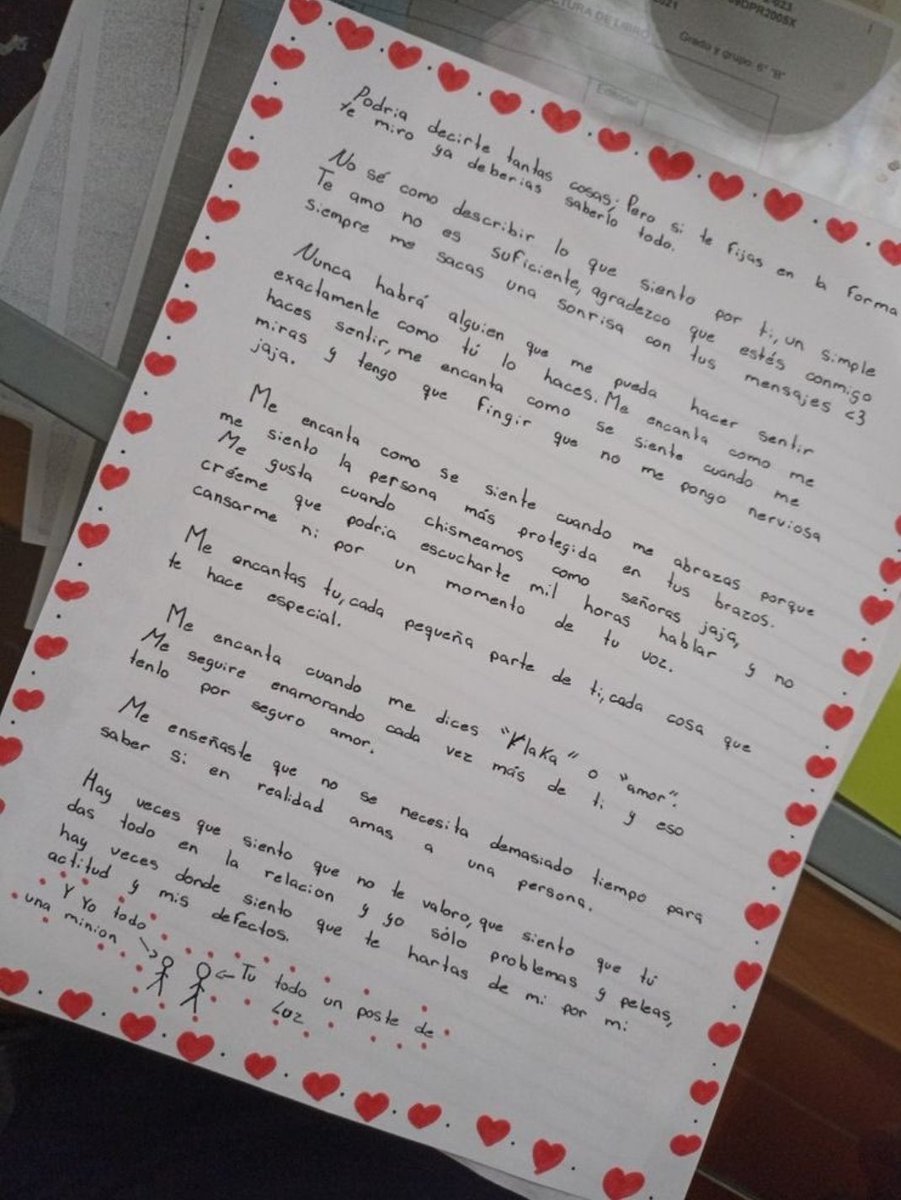 023
09DPR2005X
2021
CTURA DE LIBRO
Grado y grupo: 6° "B"
Editorial
Podria decirte tantas cosas; Pero si te fijas en la forma
te miro ya deberias saberlo todo.
No sé como describir lo que siento por ti, un simple
Te amo no es suficiente, agradezco que estés conmigo
siempre me sacas una sonrisa con tus mensajes <3
Nunca habrá alguien que me pueda hacer sentir
exactamente como tú lo haces. Me encanta como me
haces sentir, me encanta como se siente cuando me
miras y tengo que fingir que no me pongo nerviosa
jaja.
Me encanta como se siente cuando me abrazas porque
me siento la persona más protegida en tus brazos.
Me gusta cuando chismeamos como señoras jaja,
créeme que podria escucharte mil horas hablar y no
cansarme ni por un momento de tu voz.
Me encantas tu, cada pequeña parte de ti, cada cosa que
te hace especial.
Me encanta cuando me dices "Klaka" o "amor".
Me seguire enamorando cada vez más de ti y eso
tenlo por seguro amor.
Me enseñaste que no se necesita demasiado tiempo para
saber si en realidad amas a una persona.
Hay veces que siento que no te valoro, que siento que tú
das todo en la relacion y yo sólo problemas y peleas,
hay veces donde siento que te hartas de mi por mi
actitud y mis defectos.
Y Yo todo
una minion
Tu todo un poste de
Luz